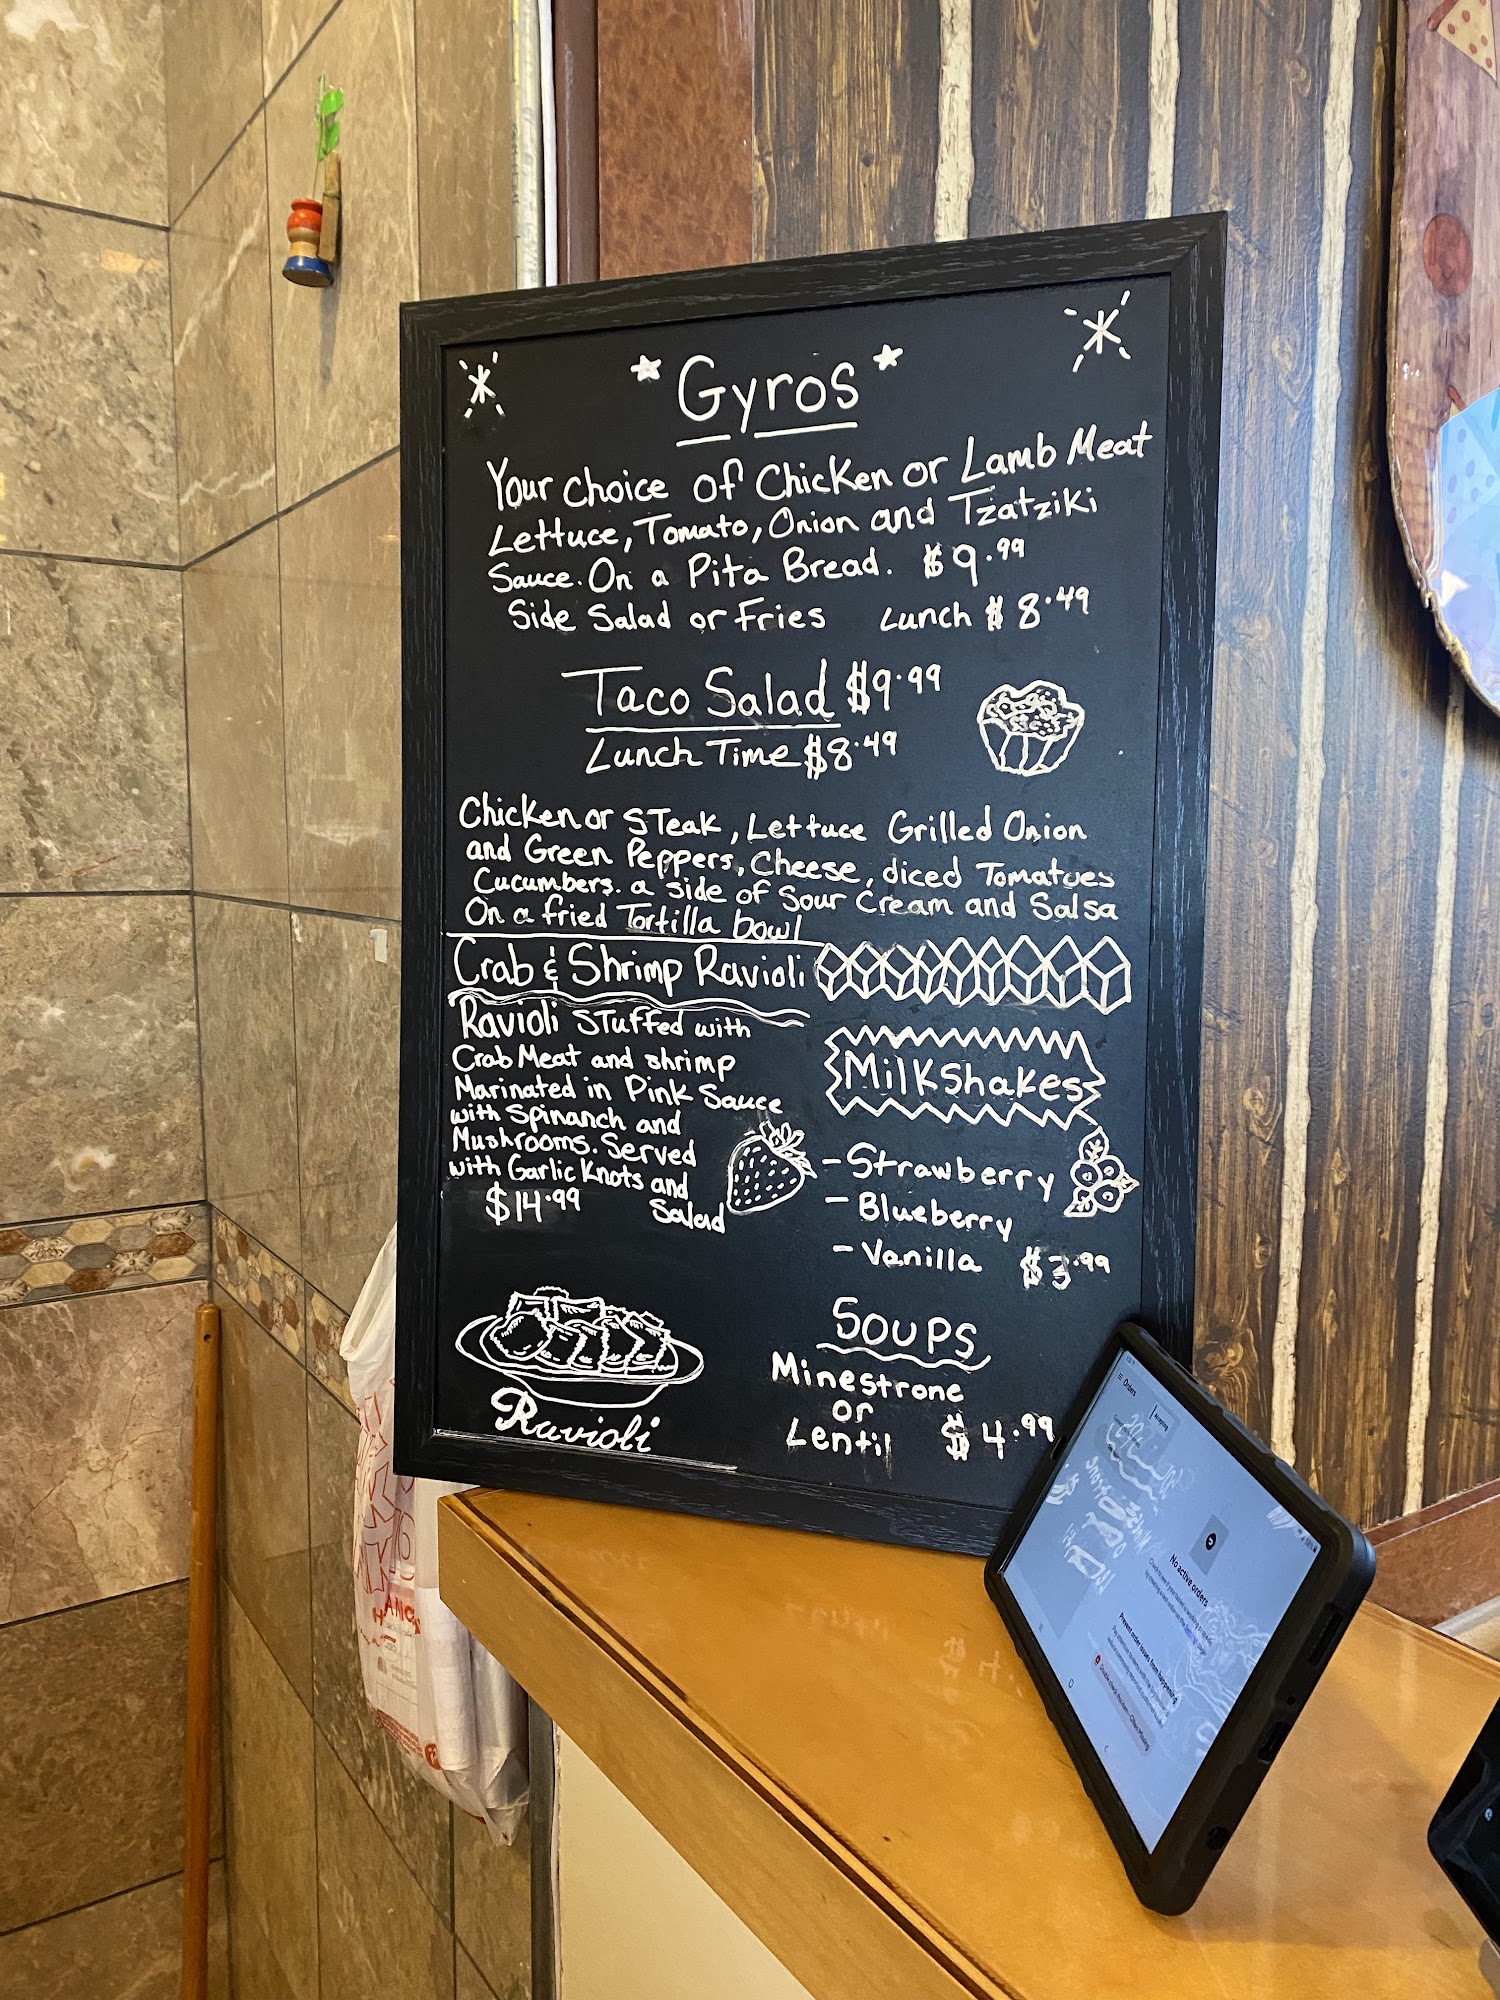 * Gyros *
Your choice of Chicken or Lamb Meat
Lettuce, Tomato, Onion and Tzatziki
Sauce. On a Pita Bread. $9.99
Side Salad or Fries Lunch $8.49
Taco Salad $9.99
Lunch Time $8.49
Chicken or STeak, Lettuce Grilled Onion
and Green Peppers, Cheese, diced Tomatoes
Cucumbers. a side of Sour Cream and Salsa
On a fried Tortilla bowl
Crab & Shrimp Ravioli
Ravioli STuffed with
Crab Meat and shrimp
Marinated in Pink Sauce
with Spinanch and
Mushrooms. Served
with Garlic Knots and
$14.99 Salad
Ravioli
MilKShakes
- Strawberry
- Blueberry
- Vanilla $3.99
SOUPS
Minestrone
or
Lentil $4.99
Orders
No active orders
Prevent order issues from happening